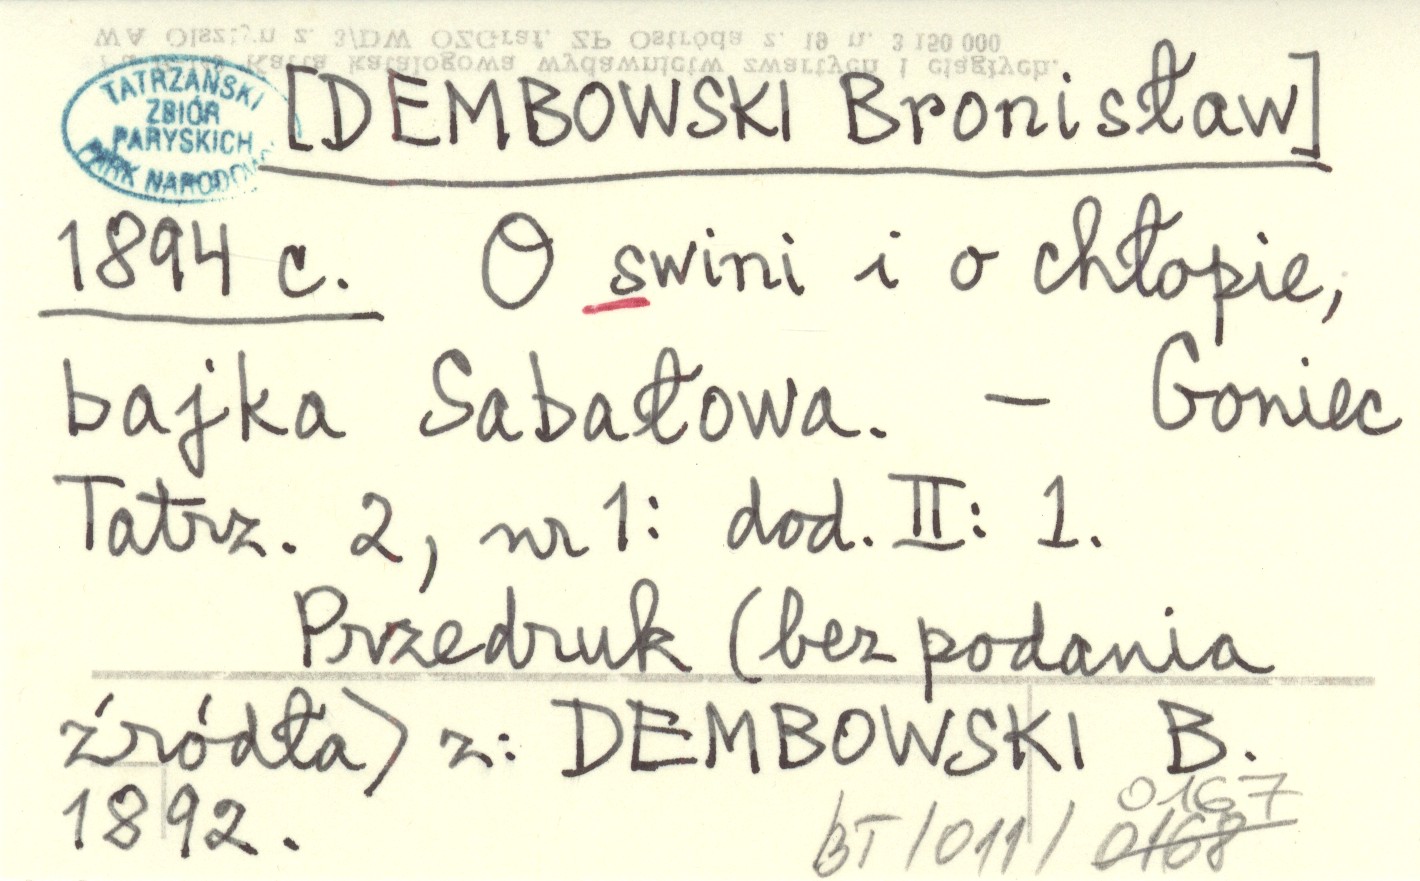 WA Olsztyn z. 3/DW OZGraf. ZP Ostróda z. 19 n. 3 150 000
karta katalogowa wydawnictw zwartych i ciągłych.
TATRZAŃSKI
ZBIÓR
PARYSKICH
PARK NARODOWY
[DEMBOWSKI Bronisław]
1894 c. O swini i o chłopie,
bajka Sabałowa. – Goniec
Tatrz. 2, nr 1: dod. II: 1.
Przedruk (bez podania
źródła) z: DEMBOWSKI B.
1892.
0167
BT/011/ 0168